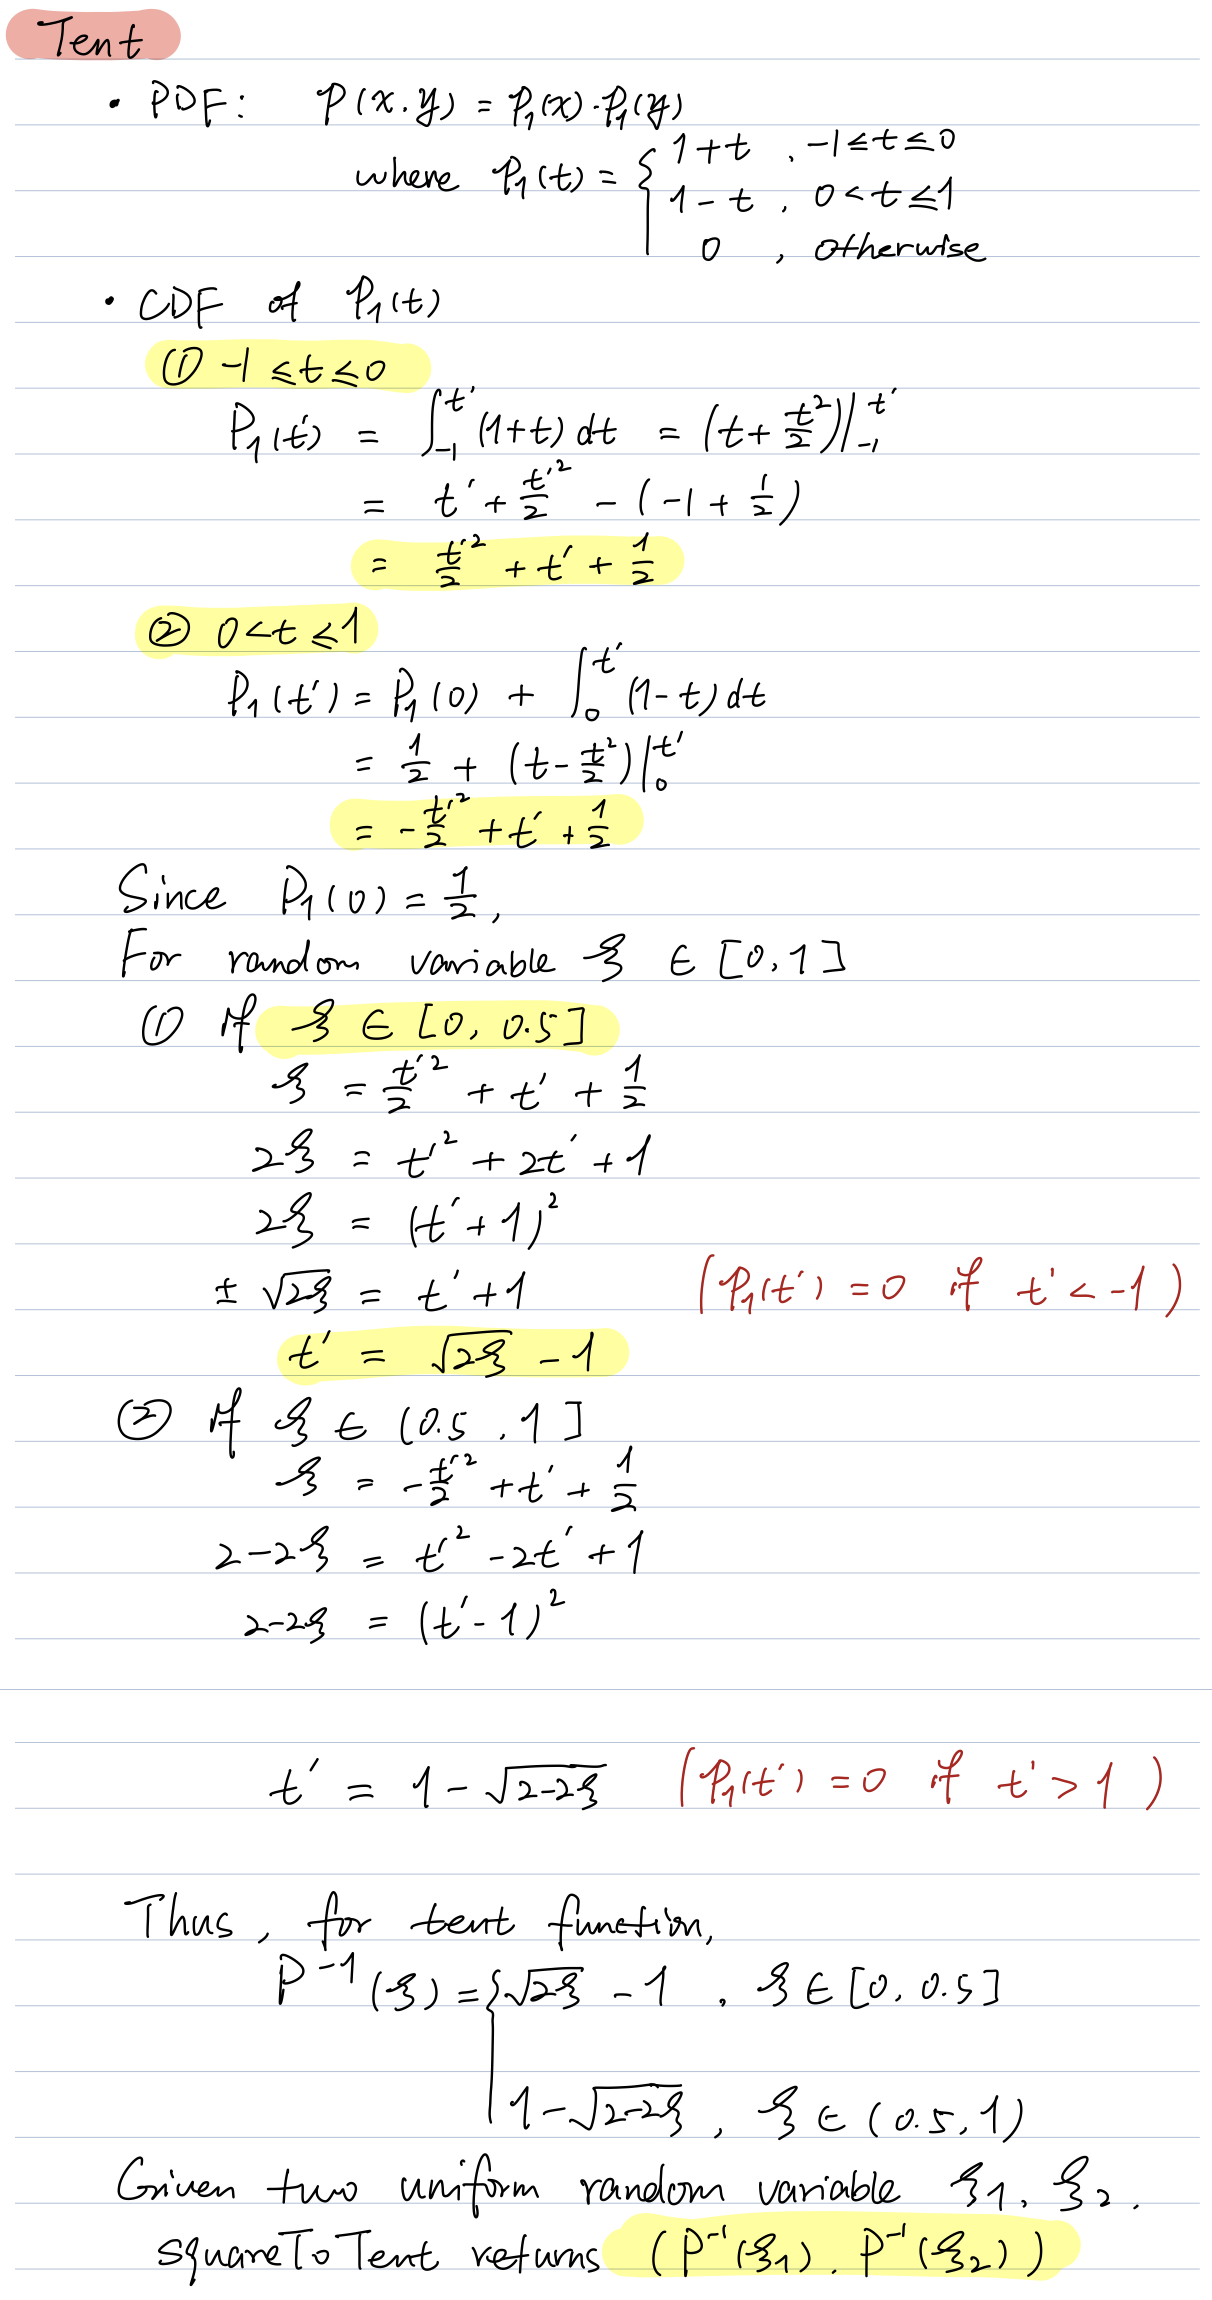 Tent
• PDF: p(x, y) = p₁(x) · p₁(y)
where p₁(t) = { 1+t , -1 ≤ t ≤ 0
1-t , 0 < t ≤ 1
0 , otherwise
• CDF of P₁(t)
① -1 ≤ t ≤ 0
P₁(t') = ∫₋₁^t' (1+t) dt = (t + t²/2)|₋₁^t'
= t' + t'²/2 - (-1 + 1/2)
= t'²/2 + t' + 1/2
② 0 < t ≤ 1
P₁(t') = P₁(0) + ∫₀^t' (1-t) dt
= 1/2 + (t - t²/2)|₀^t'
= -t'²/2 + t' + 1/2
Since P₁(0) = 1/2,
For random variable ξ ∈ [0, 1]
① if ξ ∈ [0, 0.5]
ξ = t'²/2 + t' + 1/2
2ξ = t'² + 2t' + 1
2ξ = (t' + 1)²
± √2ξ = t' + 1 (p₁(t') = 0 if t' < -1)
t' = √2ξ - 1
② if ξ ∈ (0.5, 1]
ξ = -t'²/2 + t' + 1/2
2-2ξ = t'² - 2t' + 1
2-2ξ = (t' - 1)²
t' = 1 - √2-2ξ (p₁(t') = 0 if t' > 1)
Thus, for tent function,
P⁻¹(ξ) = { √2ξ - 1 , ξ ∈ [0, 0.5]
1 - √2-2ξ , ξ ∈ (0.5, 1)
Given two uniform random variable ξ1, ξ2,
squareToTent returns (P⁻¹(ξ1), P⁻¹(ξ2))